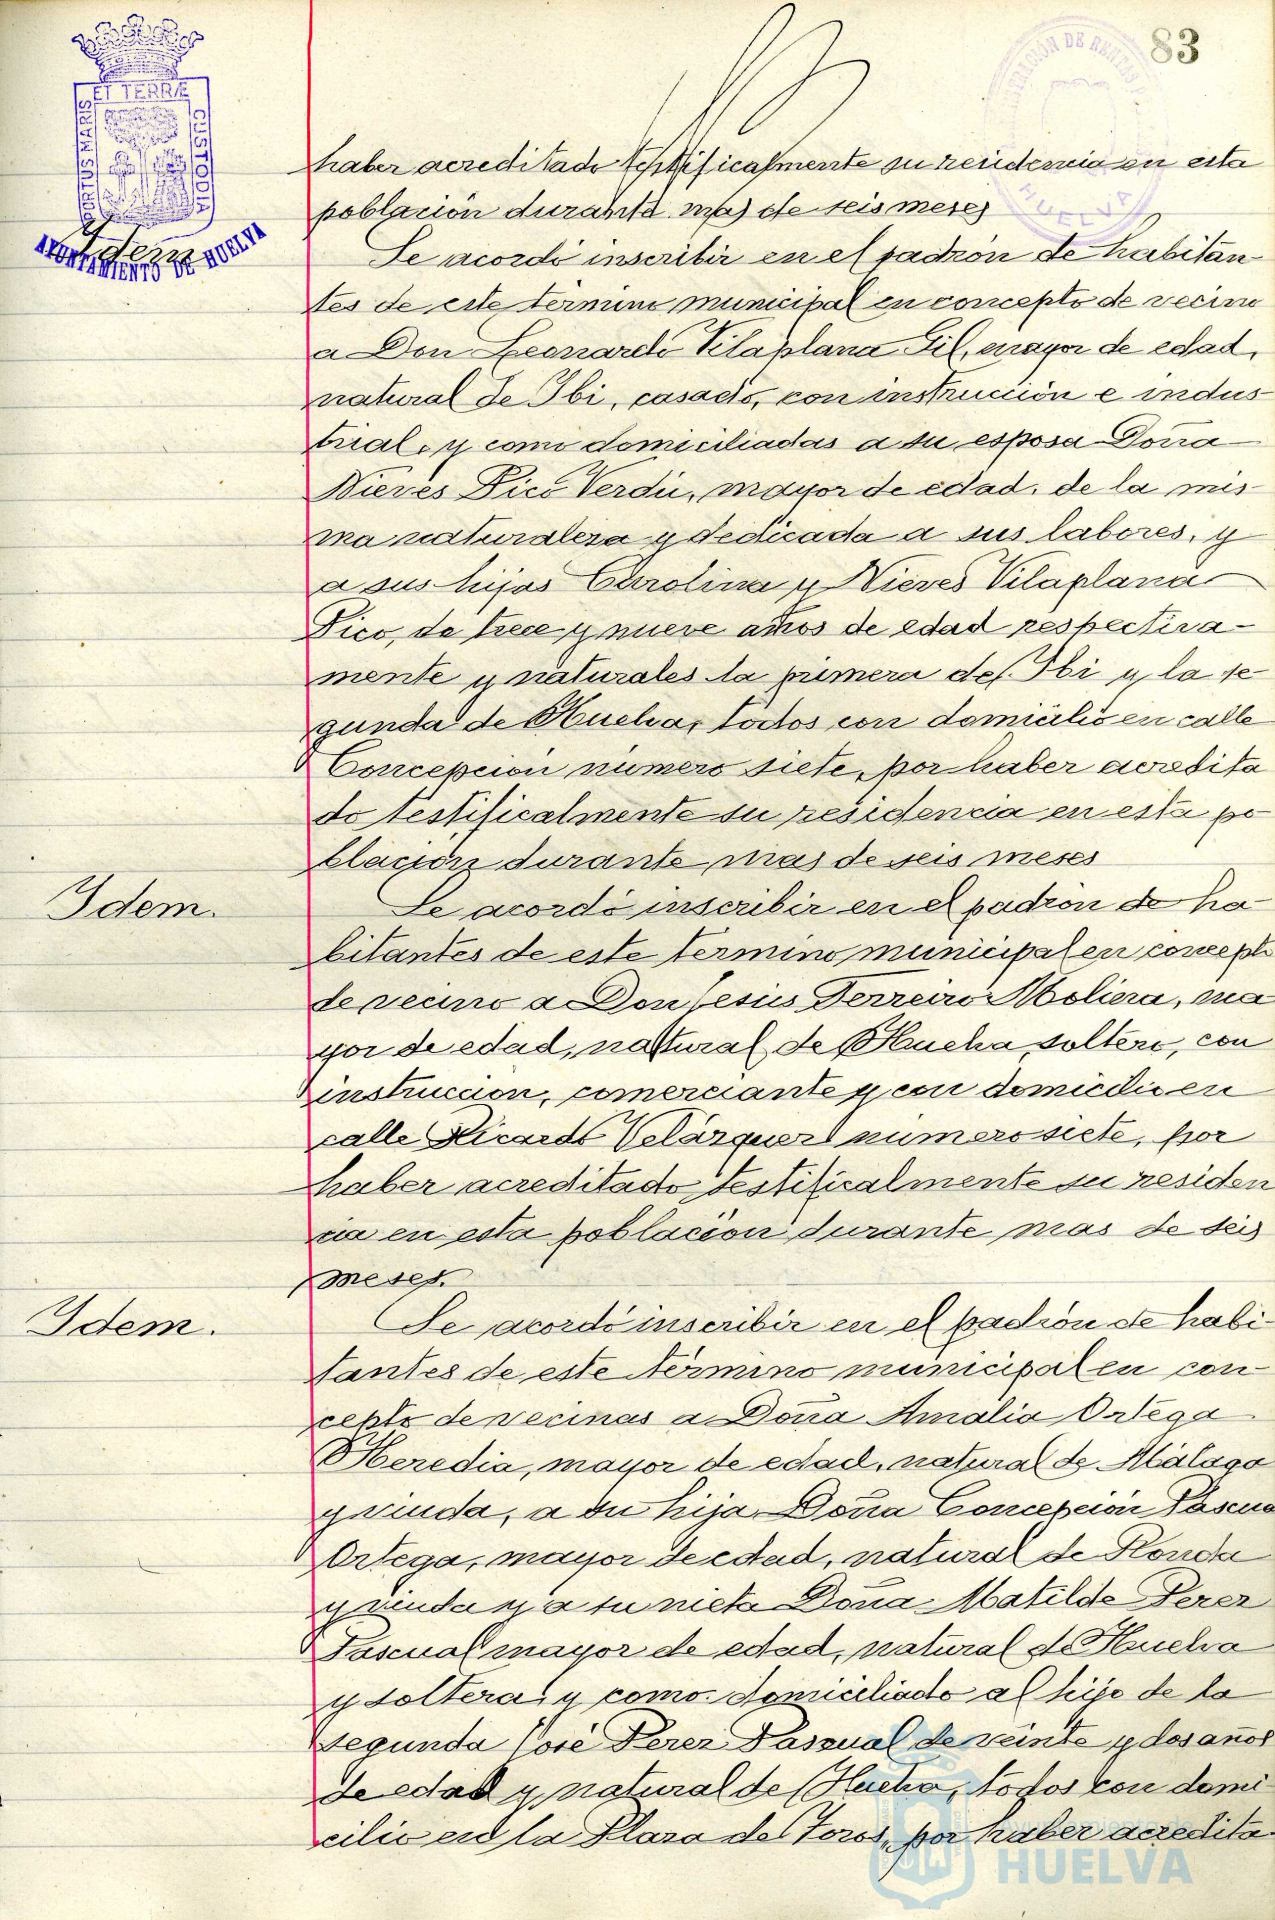 83
ET TERRÆ
PORTUS MARIS
CUSTODIA
AYUNTAMIENTO DE HUELVA
HUELVA
haber acreditado testificalmente su residencia en esta
población durante mas de seis meses
Idem
Se acordó inscribir en el padrón de habitan-
tes de este término municipal en concepto de vecino
a Don Leonardo Vilaplana Gil, mayor de edad,
natural de Ibi, casado, con instrucción e indus-
trial, y como domiciliadas a su esposa Doña
Nieves Picó Verdú, mayor de edad, de la mis-
ma naturaleza y dedicada a sus labores, y
a sus hijas Carolina y Nieves Vilaplana
Pico, de trece y nueve años de edad respectiva-
mente y naturales la primera de Ibi y la se-
gunda de Huelva, todos con domicilio en calle
Concepción número siete, por haber acredita
do testificalmente su residencia en esta po-
blación durante mas de seis meses
Idem.
Se acordó inscribir en el padrón de ha-
bitantes de este termino municipal en concepto
de vecino a Don Jesús Ferreiro Moliera, ma
yor de edad, natural de Huelva soltero, con
instruccion, comerciante y con domicilio en
calle Ricardo Velázquez numero siete, por
haber acreditado testificalmente su residen
cia en esta población durante mas de seis
meses.
Idem.
Se acordó inscribir en el padrón de habi-
tantes de este término municipal en con-
cepto de vecinas a Doña Amalia Ortega
Heredia, mayor de edad, natural de Málaga
y viuda, a su hija Doña Concepción Pascua
Ortega, mayor de edad, natural de Ronda
y viuda y a su nieta Doña Matilde Perez
Pascual mayor de edad, natural de Huelva
y soltera, y como domiciliado al hijo de la
segunda José Perez Pascual de veinte y dos años
de edad y natural de Huelva, todos con domi
cilio en la Plaza de Toros, por haber acredita
HUELVA